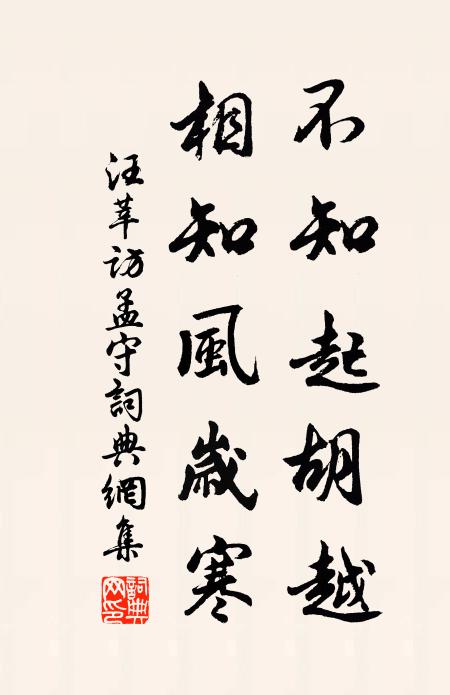 不知起胡越
相知風歲寒
汪莘訪孟守詞典網集
詞典網印